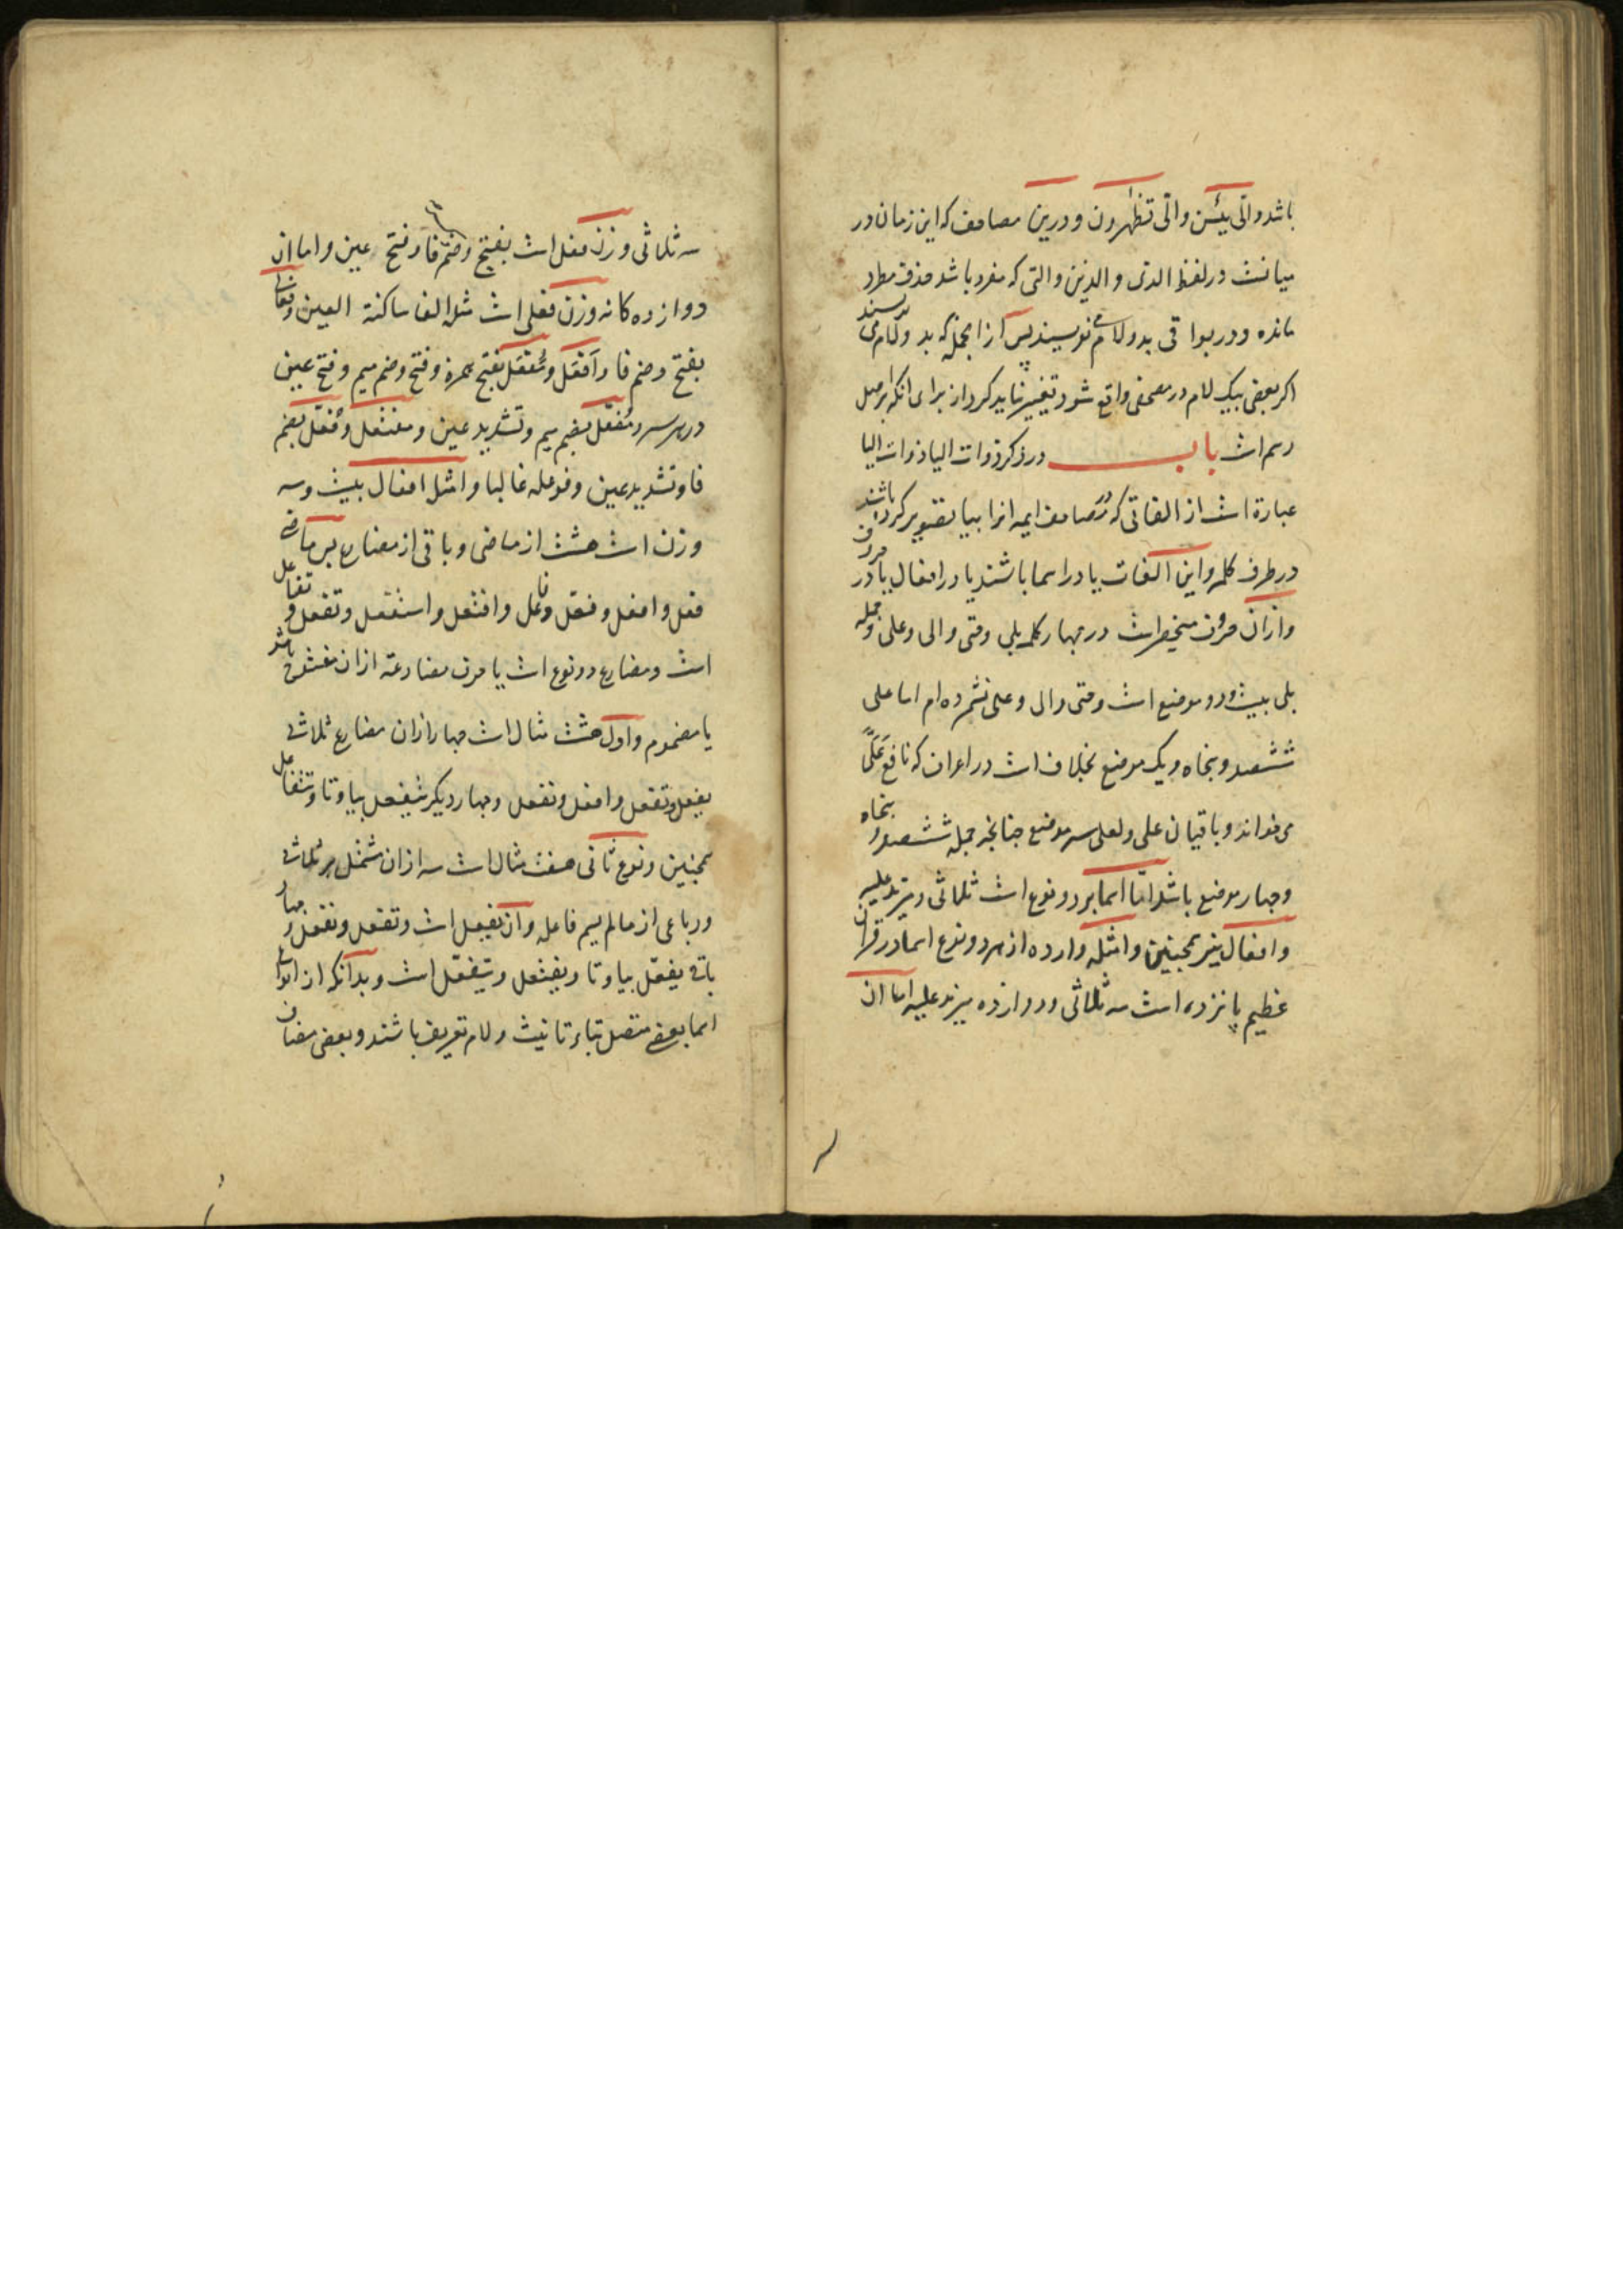 باشد والی یئسن والی تظهرون ودرین مصاحف که این زمان در
میانست در لفظ الذی والذین والتی که مفرد باشد حذف مطرد
مانده ودر بواقی بدو لام می نویسند پس از انجمله که بدو لام می نویسند
اکر بعضی بیک لام در مصحفی واقع شود تغییر نباید کرد از برای انکه بر اصل
رسم است باب در ذکر ذوات الیا ذوات الیا
عبارة است از الفاتی که در مصاحف ایمه انرا بیا تصویر کرده باشند
در طرف کلمه واین الفات یا در اسما باشند یا در افعال یا در حروف
واز ان حروف منحصر است در چهار کلمه بلی وحتی والی وعلی وجمله
بلی بیست ودو موضع است وحتی والی وعلی نشمرده ام اما علی
ششصد وپنجاه ویک موضع بخلاف است در اعراف که نافع علیّ
می خواند وباقیان علی ولعلی سه موضع چنانچه جمله ششصد وپنجاه
وچهار موضع باشد امّا اسما بر دو نوع است ثلاثی ومزید علیه
وافعال نیز همچنین وامثله وارده از هر دو نوع اسما در قران
عظیم پانزده است سه ثلاثی ودوازده مزید علیه اما ان
سه ثلاثی وزن فعل است بفتح وضمّ فا وفتح عین واما ان
دوازده کانه وزن فعلی است مثلة الفا ساکنة العین وفعالی
بفتح وضم فا وأفعَل ومُفعَل بفتح همزه وفتح وضم میم وفتح عین
در هر سه ومُفعّل بضم میم وتشدید عین ومفتعل وفُعّل بضم
فا وتشدید عین وفوعله غالبا وامثل افعال بیست وسه
وزن است هشت از ماضی وباقی از مضارع پس ماضی
فعل وافعل وفعّل وفاعل وافتعل واستفعل وتفعل وتفاعل
است ومضارع دو نوع است یا حرف مضارعة ازان مفتوح باشد
یا مضموم واول هشت مثال است چهار ازان مضارع ثلاثی
یفعل وتفعل وافعل ونفعل وچهار دیکر یتفعل بیا وتا ویتفاعل
همچنین ونوع ثانی هفت مثال است سه ازان مشتمل بر ثلاثی
ورباعی از ما لم یسم فاعله وان یفعل است وتفعل ونفعل وچهار
باقی یفعّل بیا وتا ویفتعل ویتفعّل است وبدانکه از انواع
اسما بعضی متصل بتاء تانیث ولام تعریف باشند وبعضی مضاف